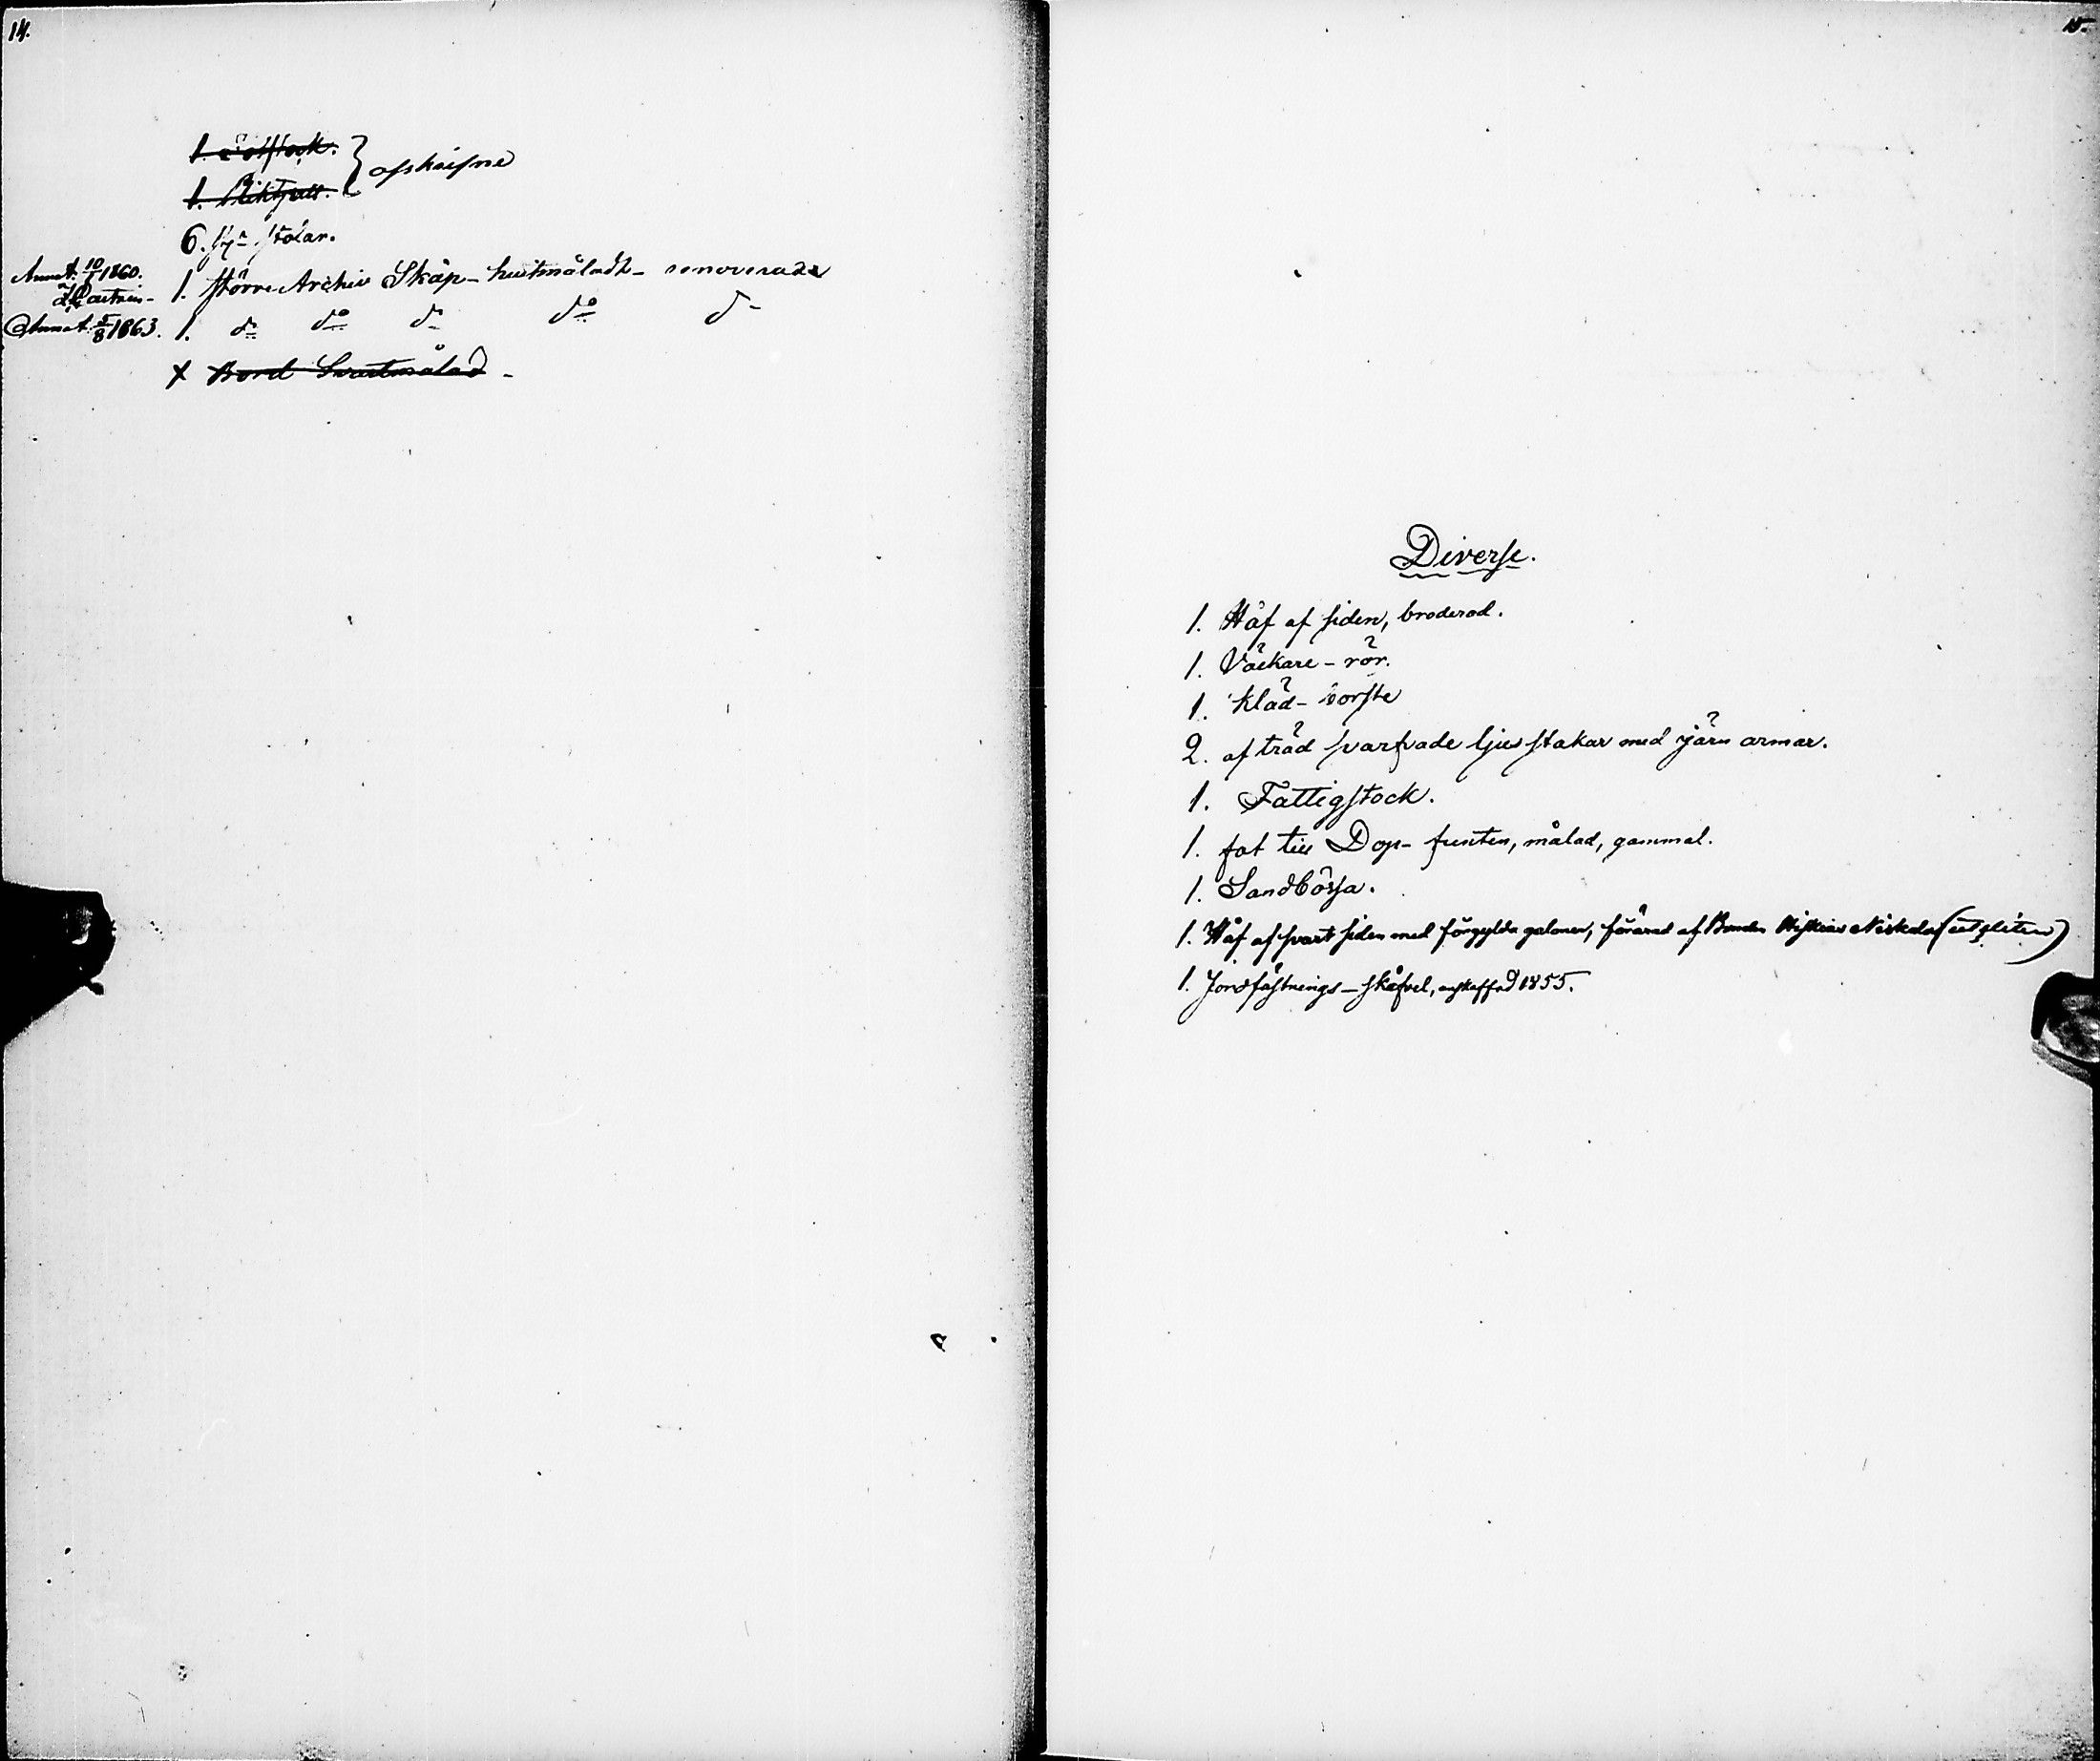 14.
1. Fotstock.
1. Pliktpall. } afskrifne
6. st. stolar.
Annot. 10/1 1860. 1. större Archiv Skåp - hvitmåladt - renoverade
Annot. 5/8 1863. 1. do do do do do
Bord Svartmålad -
15.
Diverse.
1. Håf af siden, broderad.
1. Väckare-rör.
1. Kläd-borste
2. af träd svarfvade ljus stakar med järn armar.
1. Fattigstock.
1. fat till Dop-funten, målad, gammal.
1. Sandbössa.
1. Håf af svart siden med förgylda galoner, förärad af Bonden Niskala (utsliten)
1. Jordfästnings-skåfvel, anskaffad 1855.